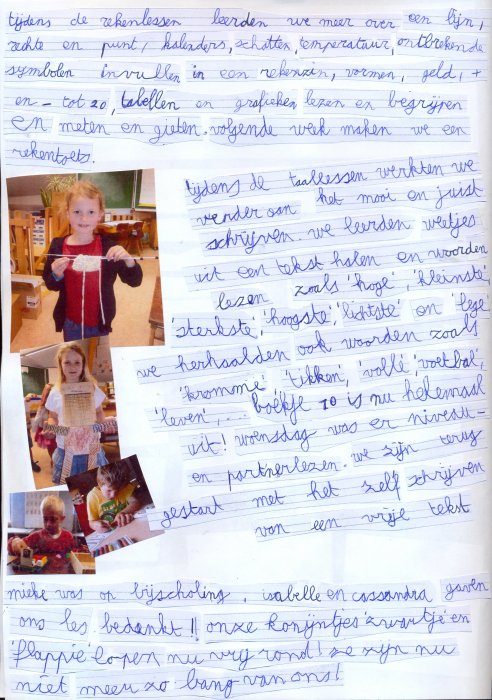 tijdens de rekenlessen leerden we meer over een lijn,
rechte en punt, kalenders, schatten, temperatuur, ontbrekende
symbolen invullen in een rekenzin, vormen, geld, +
en - tot 20, tabellen en grafieken lezen en begrijpen
en meten en gieten. volgende week maken we een
rekentoets.
tijdens de taallessen werkten we
verder aan het mooi en juist
schrijven. we leerden weetjes
uit een tekst halen en woorden
lezen zoals 'hoge', 'kleinste',
'sterkste', 'hoogste', 'lichtste' en 'lege'
we herhaalden ook woorden zoals
'kromme', 'tikken', 'volle', 'voetbal',
'leven', ... boekje 10 is nu helemaal
uit! woensdag was er niveau-
en partnerlezen. we zijn terug
gestart met het zelf schrijven
van een vrije tekst
mieke was op bijscholing. isabelle en cassandra gaven
ons les. bedankt! onze konijntjes 'zwartje' en
'flappie' lopen nu vrij rond! ze zijn nu
niet meer zo bang van ons!